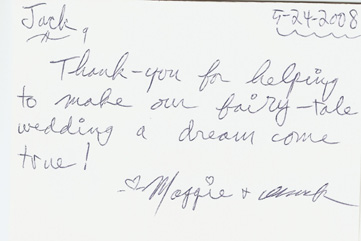 Jack,
5-24-2008
Thank-you for helping
to make our fairy-tale
wedding a dream come
true!
♡ Maggie +